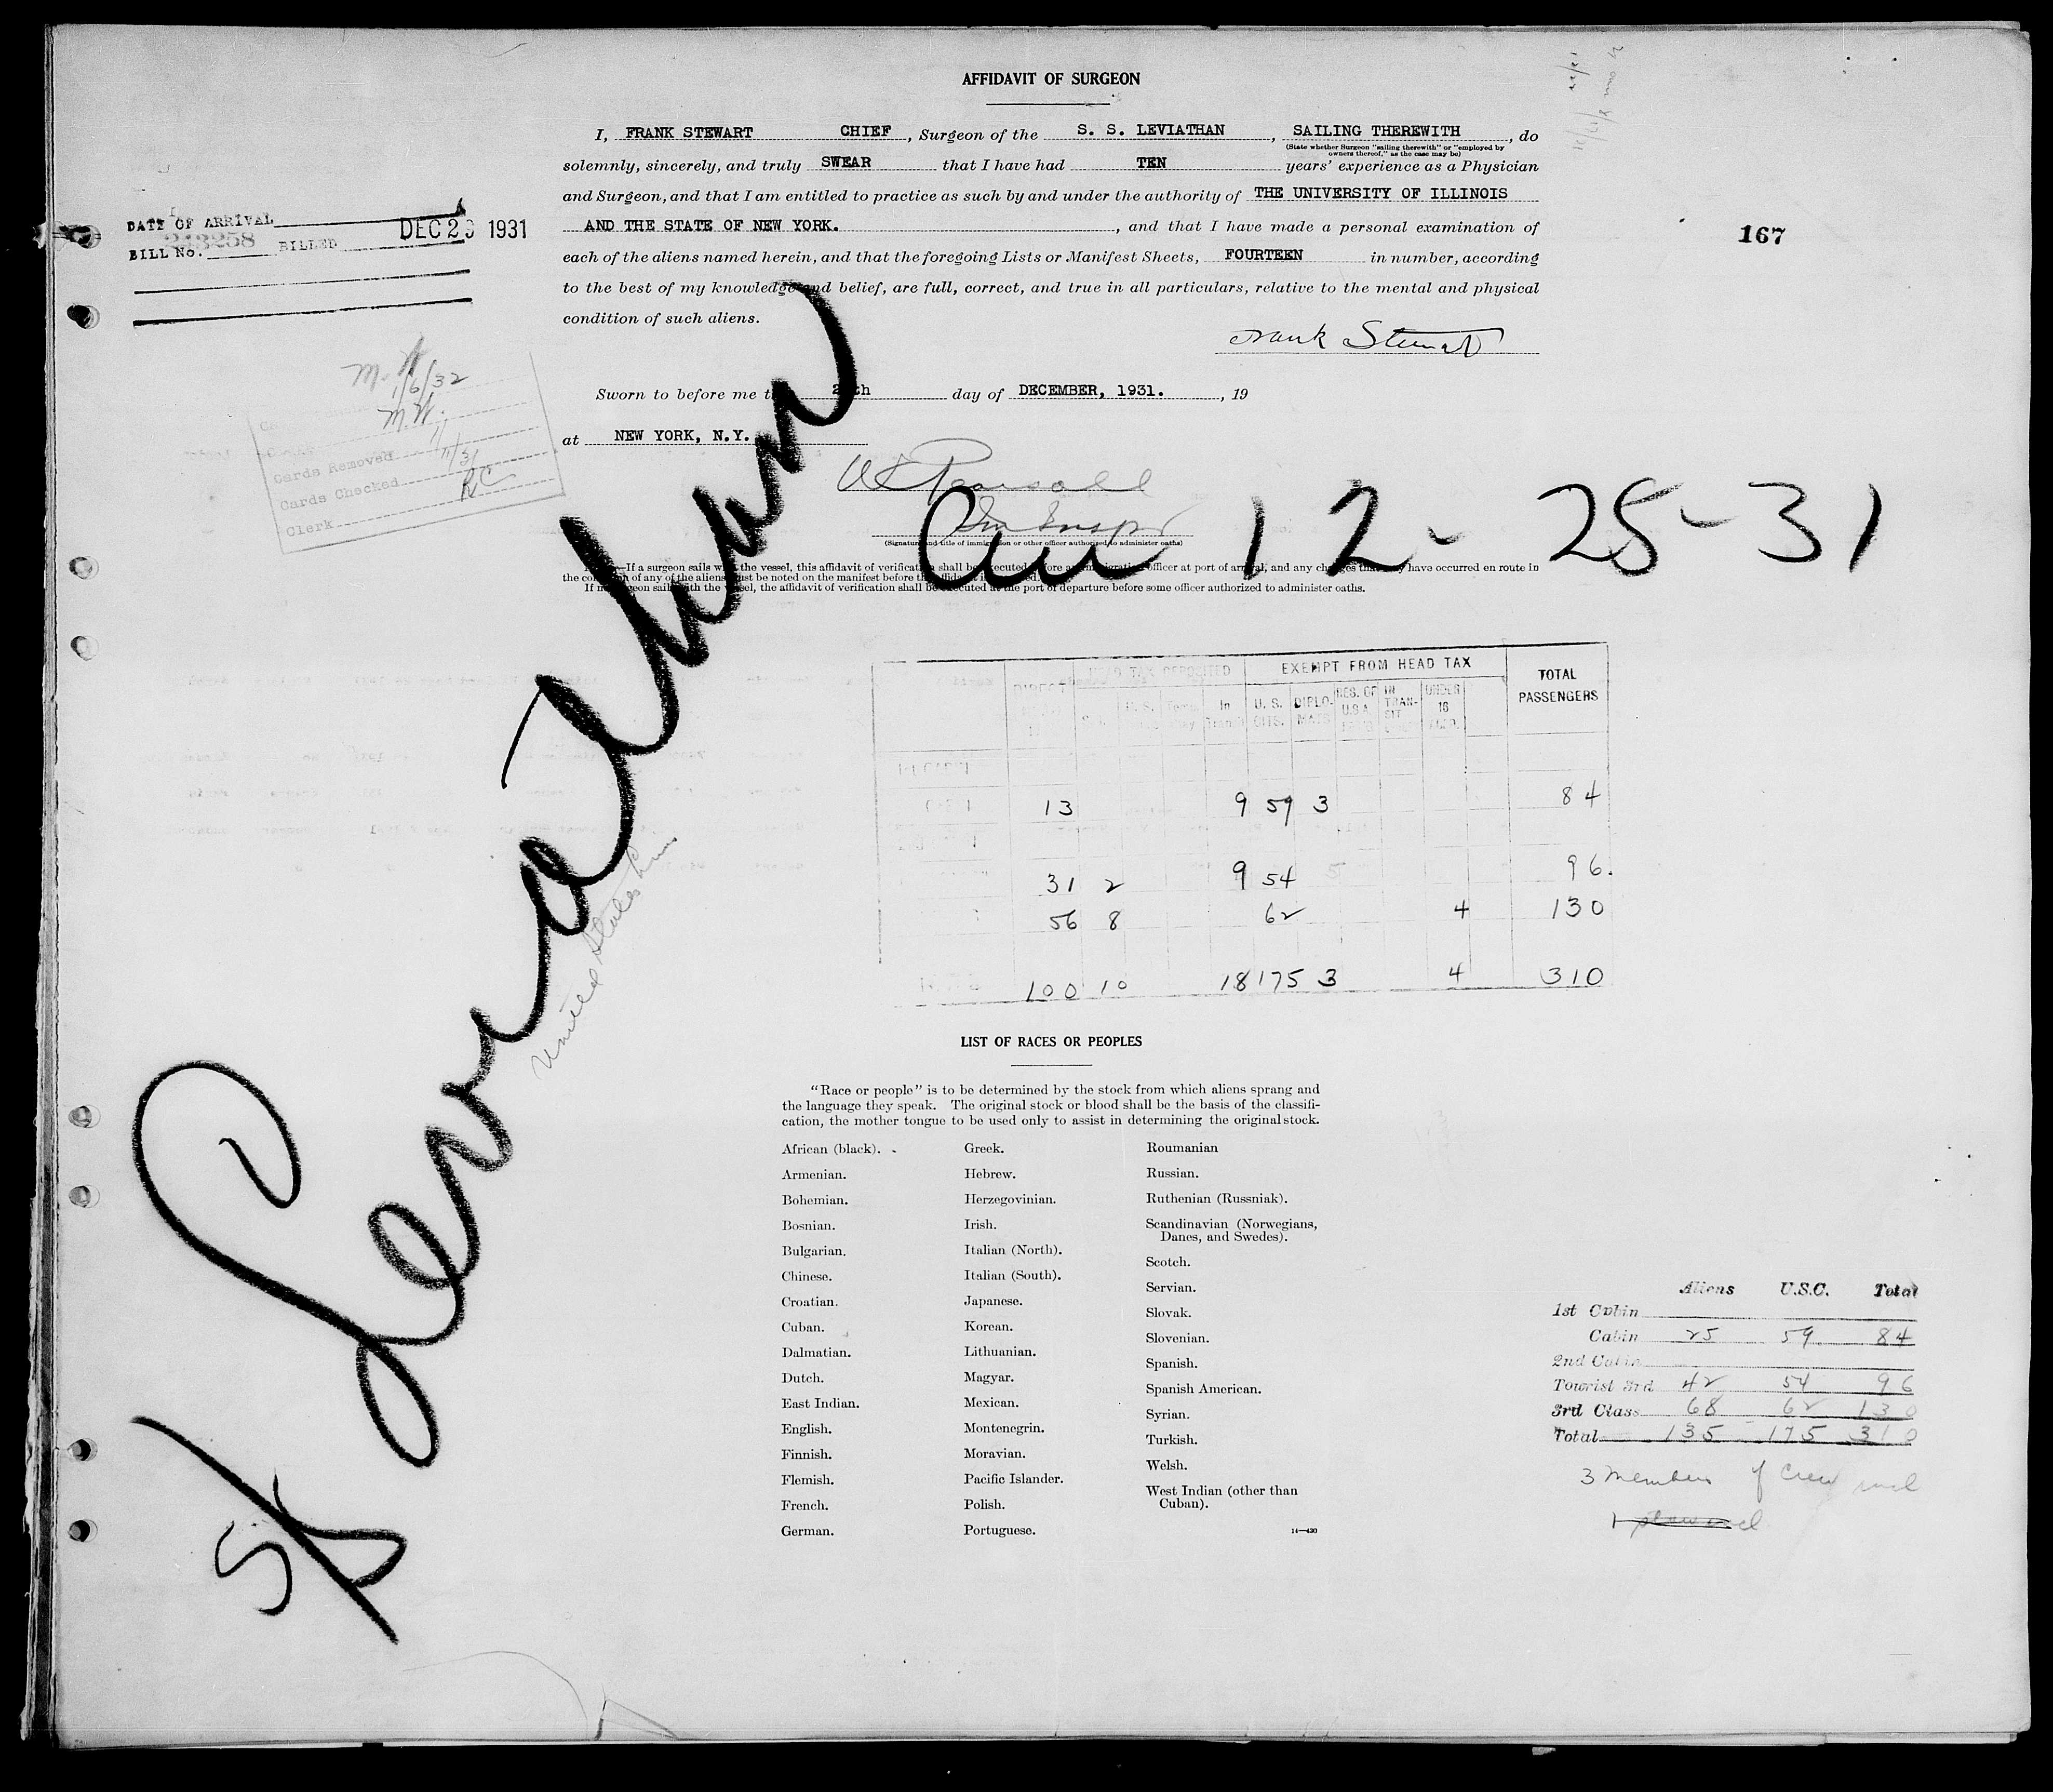 AFFIDAVIT OF SURGEON
I, FRANK STEWART CHIEF, Surgeon of the S. S. LEVIATHAN, SAILING THEREWITH, do
(State whether Surgeon "sailing therewith" or "employed by
owners thereof," as the case may be)
solemnly, sincerely, and truly SWEAR that I have had TEN years' experience as a Physician
and Surgeon, and that I am entitled to practice as such by and under the authority of THE UNIVERSITY OF ILLINOIS
AND THE STATE OF NEW YORK., and that I have made a personal examination of
each of the aliens named herein, and that the foregoing Lists or Manifest Sheets, FOURTEEN in number, according
to the best of my knowledge and belief, are full, correct, and true in all particulars, relative to the mental and physical
condition of such aliens.
Frank Stewart
Sworn to before me day of DECEMBER, 1931., 19
at NEW YORK, N.Y.
DATE OF ARRIVAL
BILL No. 243258 BILLED DEC 1931
167
M.W.
1/6/32
M.W.
Cards Removed
Cards Checked
Clerk RC
(Signature and title of immigration or other officer authorized to administer oaths)
Arr 12-25-31
If a surgeon sails with the vessel, this affidavit of verification shall be executed before an immigration officer at port of arrival, and any changes that may have occurred en route in
the condition of any of the aliens must be noted on the manifest before the affidavit is
If no surgeon sails with the vessel, the affidavit of verification shall be executed at the port of departure before some officer authorized to administer oaths.
SS Leviathan
United States Lines
HEAD TAX DEPOSITED EXEMPT FROM HEAD TAX TOTAL
PASSENGERS
DIRECT In Transit U. S. CITS. DIPLO-MATS RES. OF U.S.A. IN TRAN-SIT UNDER 16
13 9 59 3 84
31 2 9 54 5 96.
56 8 62 4 130
100 10 18 175 3 4 310
LIST OF RACES OR PEOPLES
"Race or people" is to be determined by the stock from which aliens sprang and
the language they speak. The original stock or blood shall be the basis of the classifi-
cation, the mother tongue to be used only to assist in determining the original stock.
African (black).
Armenian.
Bohemian.
Bosnian.
Bulgarian.
Chinese.
Croatian.
Cuban.
Dalmatian.
Dutch.
East Indian.
English.
Finnish.
Flemish.
French.
German.
Greek.
Hebrew.
Herzegovinian.
Irish.
Italian (North).
Italian (South).
Japanese.
Korean.
Lithuanian.
Magyar.
Mexican.
Montenegrin.
Moravian.
Pacific Islander.
Polish.
Portuguese.
Roumanian
Russian.
Ruthenian (Russniak).
Scandinavian (Norwegians,
Danes, and Swedes).
Scotch.
Servian.
Slovak.
Slovenian.
Spanish.
Spanish American.
Syrian.
Turkish.
Welsh.
West Indian (other than
Cuban).
14—430
Aliens U.S.C. Total
1st Cabin
Cabin 25 59 84
2nd Cabin
Tourist 3rd 42 54 96
3rd Class 68 62 130
Total 135 175 310
3 members of Crew incl